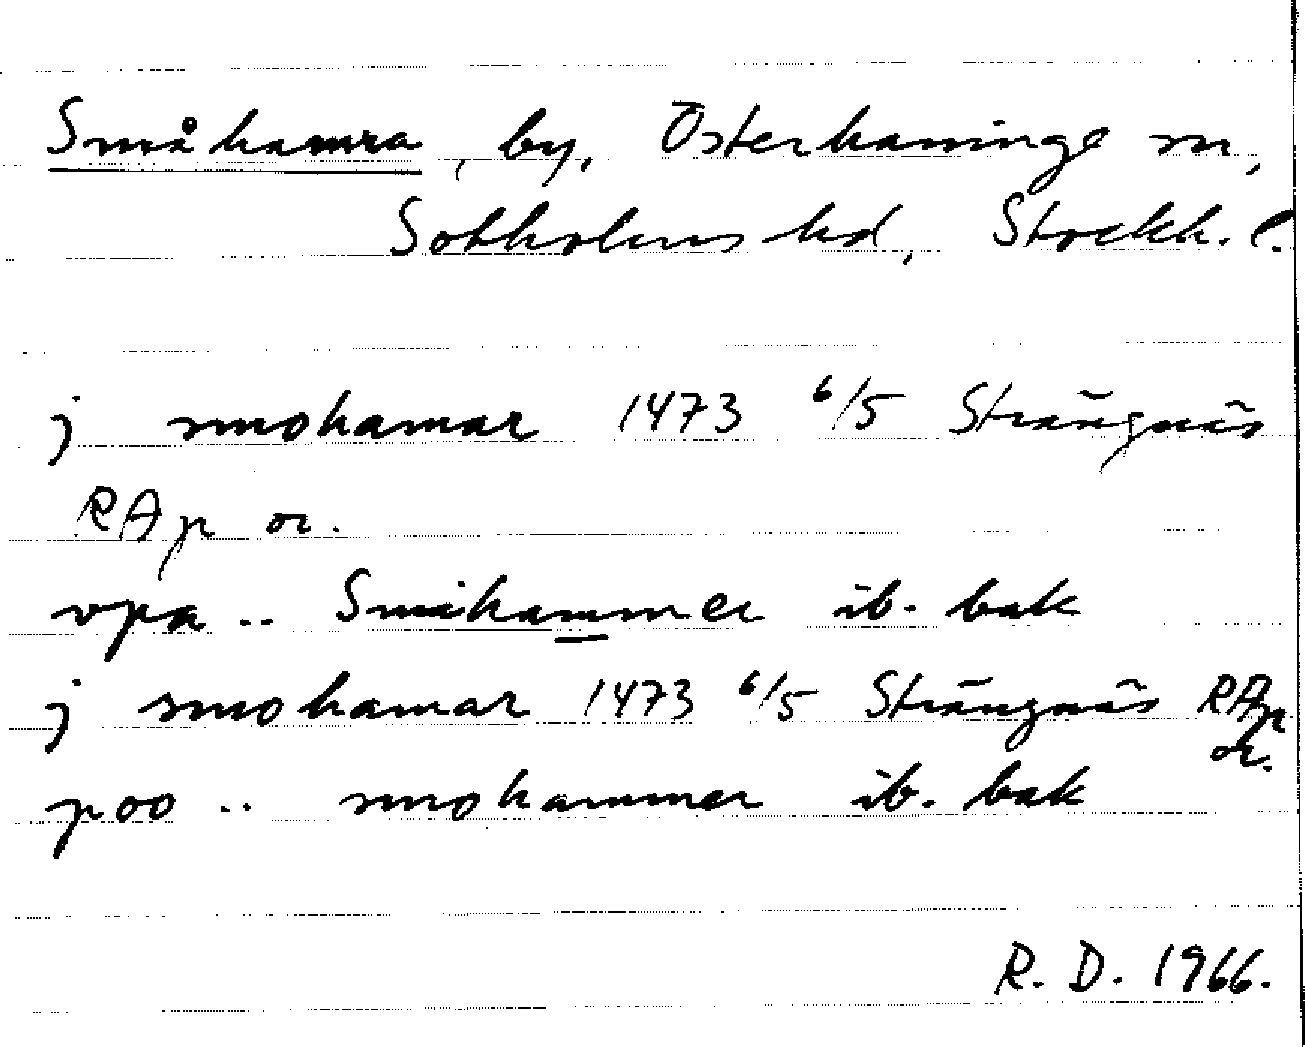 Småhamra, by, Österhaninge sn,
Sotholms hd, Stockh. l.
j smohamar 1473 6/5 Strängnäs
RAp or.
vpa .. Småhammer ib. bak
j smohamar 1473 6/5 Strängnäs RAp
or.
poo .. smohammer ib. bak
R. D. 1966.